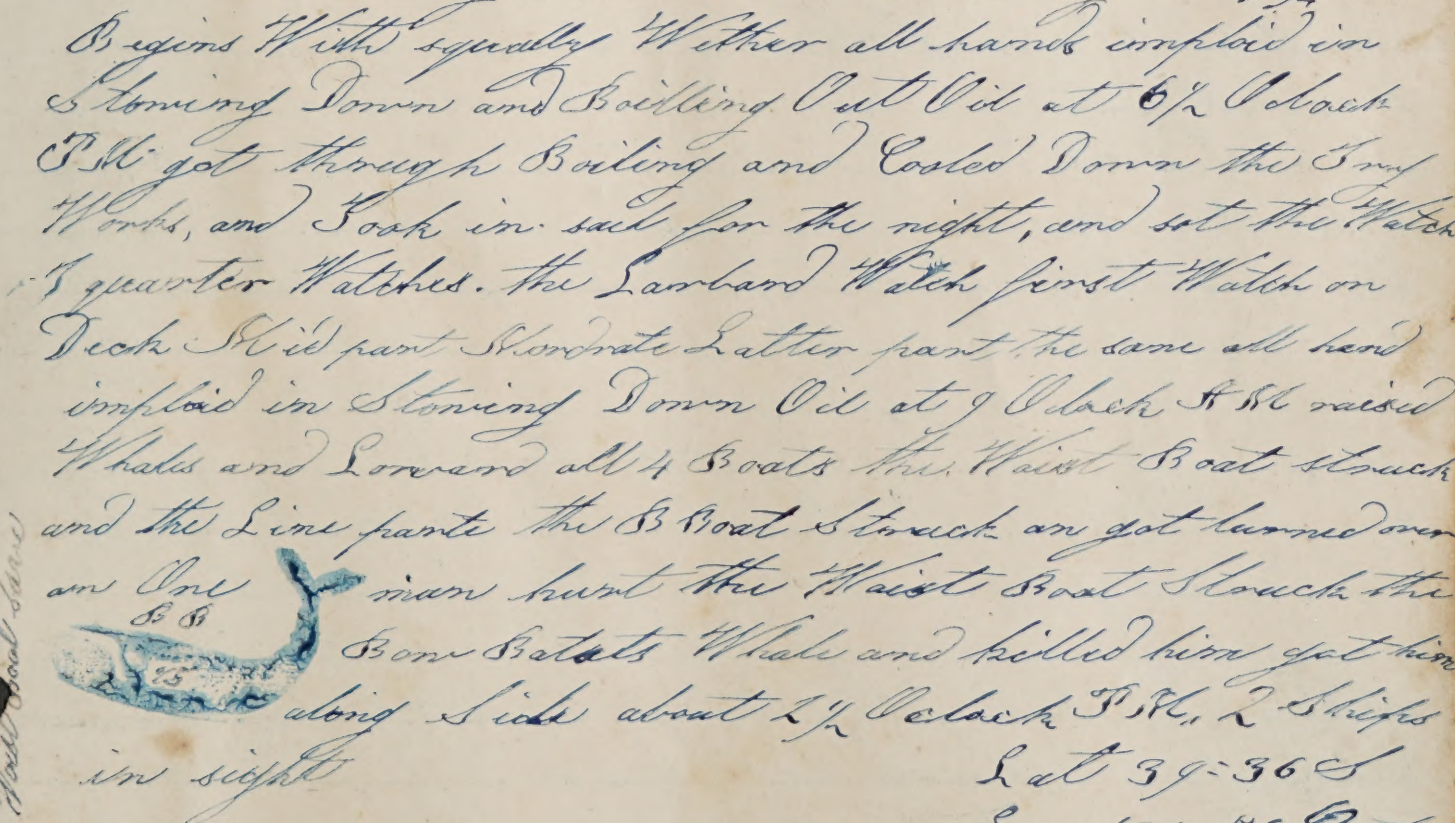 Begins With squally Wether all hands imploid in
Stowing Down and Boilling Out Oil at 6½ Oclock
PM got through Boiling and Cooled Down the Try
Works, and Took in sail for the night, and sot the Watch
I quarter Watches. the Larbard Watch first Watch on
Deck Mid part Mordrate Latter part the same all hand
imploid in Stowing Down Oil at 9 Oclock AM raised
Whales and Lowerard all 4 Boats the Waist Boat struck
and the Line parte the B Boat Struck an got turned over
an One man hurt the Waist Boat Struck the
B B
Bow Batats Whale and killed him got him
75
along Side about 2½ Oclock PM,, 2 Ships
in sight
Lat 39=36 S